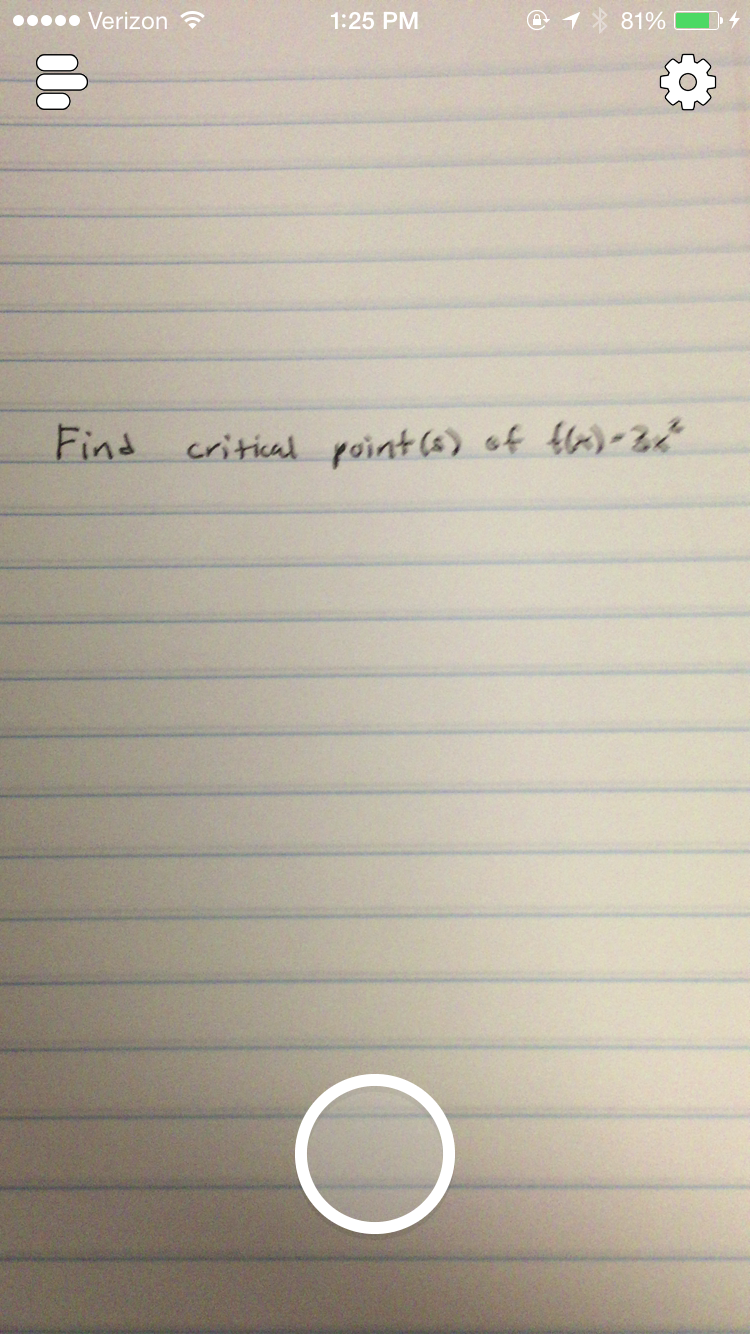 Verizon 1:25 PM 81%
Find critical point(s) of f(x)=3x²